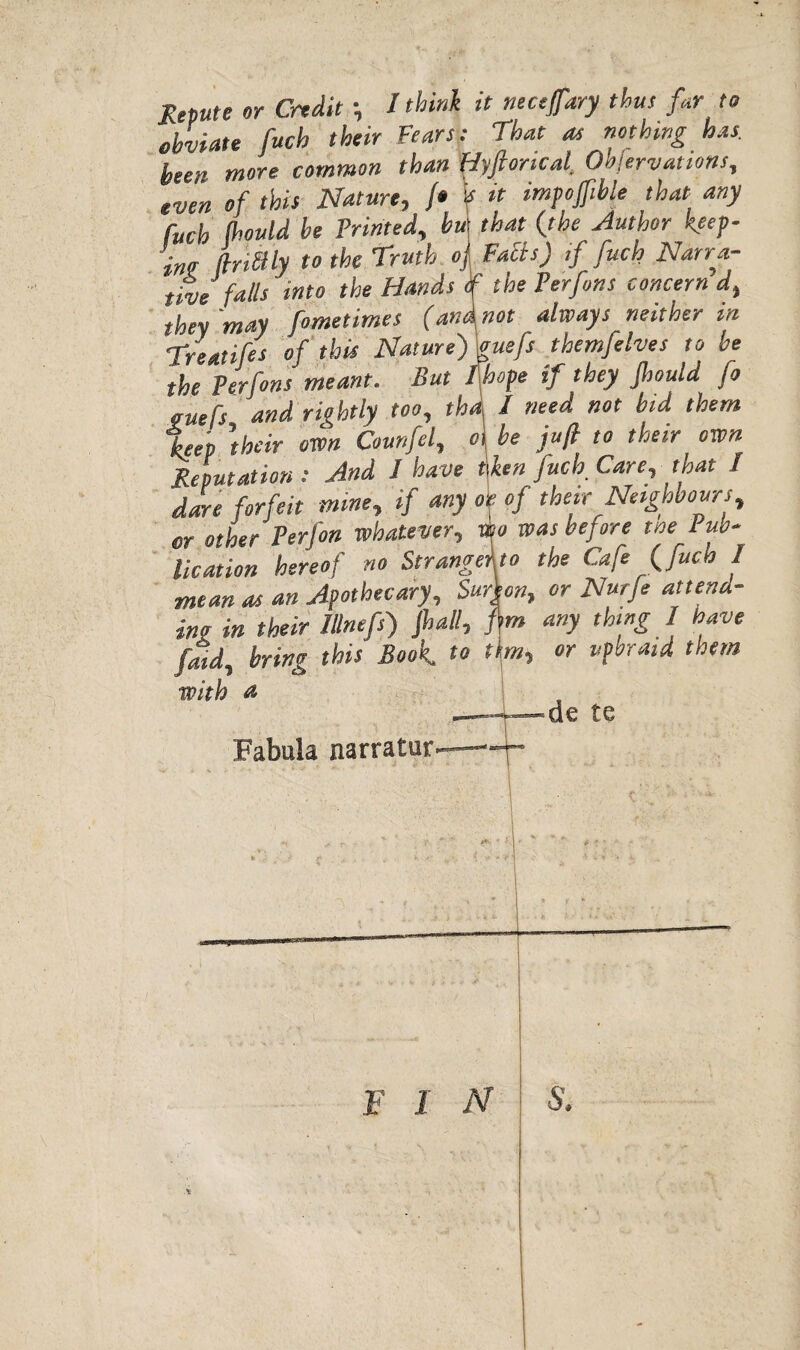 Repute or Credit ; I think it neceſſary thus far to
obviate ſuch their Fears: That as nothing has
been more common than Hyſtorical Obſervations,
even of this Nature, ſo is it impoſſible that any
ſuch ſhould be Printed, but that (the Author keep-
ing ſtrictly to the Truth of Facts) if ſuch Narra-
tive falls into the Hands of the Perſons concern'd,
they may ſometimes (and not always neither in
Treatiſes of this Nature) gueſs themſelves to be
the Perſons meant. But I hope if they ſhould ſo
gueſs, and rightly too, that I need not bid them
keep their own Counſel, or be juſt to their own
Reputation : And I have taken ſuch Care, that I
dare forfeit mine, if any one of their Neighbours,
or other Perſon whatever, who was before the Pub-
lication hereof no Stranger to the Caſe (ſuch I
mean as an Apothecary, Surgeon, or Nurſe attend-
ing in their Illneſs) ſhall, from any thing I have
ſaid, bring this Book to them, or upbraid them
with a
——de te
Fabula narratur——
F I N S.